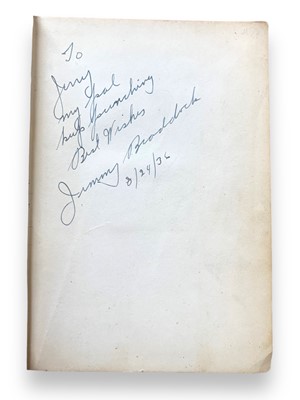 To
Jerry
my pal
keep punching
Best Wishes
Jimmy Braddock
3/24/36